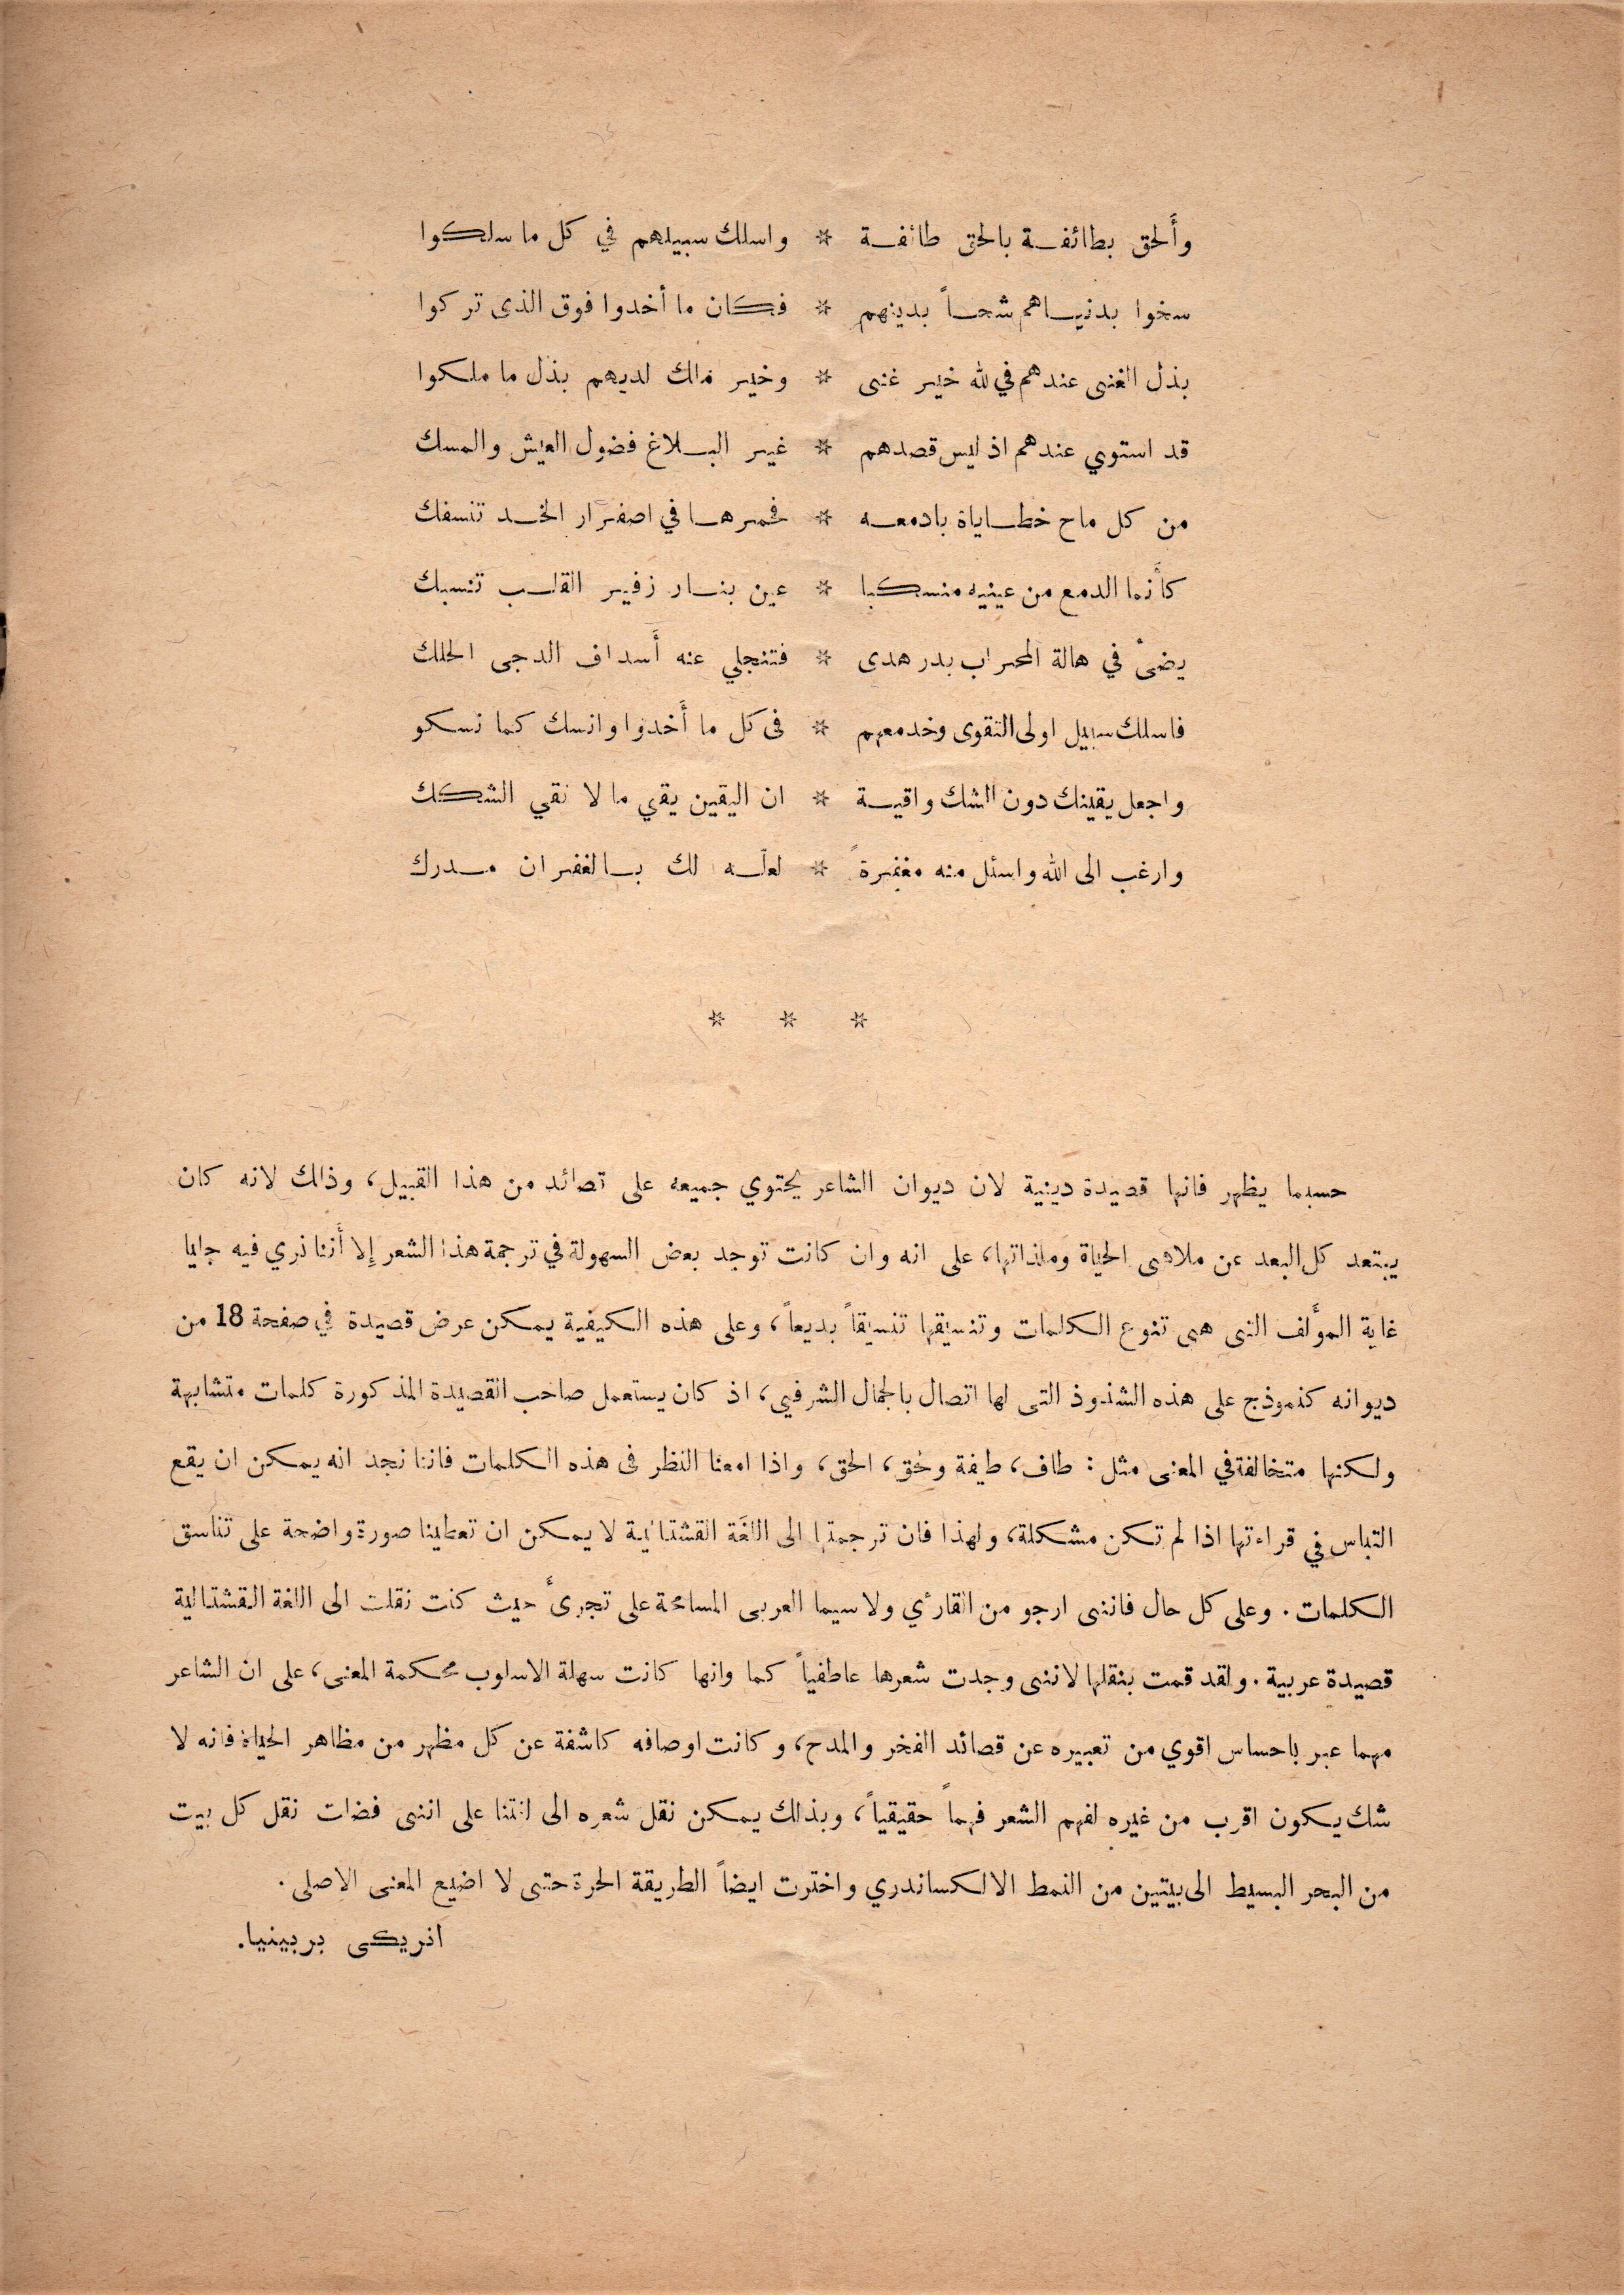 وأَلحق بطائفـة بالحق طائفـة * واسلك سبيلهم في كل ما سلكوا
سخوا بدنيـاهم شحـاً بدينهم * فكان ما أخدوا فوق الذى تركوا
بذل الغنى عندهم في لله خير غنى * وخير مالك لديهم بذل ما ملكوا
قد استوي عندهم اذ ليس قصدهم * غير البـلاغ فضول العيش والمسك
من كل ماح خطـاياة بادمعـه * فمرهـا في اصفرار الخـد تنسفك
كأَنما الدمع من عينيه منسكبا * عين بنـار زفير القلـب تنسبك
يضىْ في هالة المحراب بدر هدى * فتنجلي عنه أَسداف الدجى الحلك
فاسلك سبيل اولى التقوى وخد معهم * فى كل ما أَخدوا وانسك كما نسكو
واجعل يقينك دون الشك واقيـة * ان اليقين يقي ما لا تقي الشكك
وارغب الى الله واسئل منه مغفرةً * لعلـه لك بـالغفران مـدرك
* * *
حسبما يظهر فانها قصيدة دينية لان ديوان الشاعر يحتوي جميعه على قصائد من هذا القبيل، وذالك لانه كان
يبتعد كل البعد عن ملاهى الحياة وملذاتها، على انه وان كانت توجد بعض السهولة في ترجمة هذا الشعر إلا أَننا نري فيه جليا
غاية المؤلف التى هى تنوع الكلمات وتنسيقها تنسيقاً بديعاً، وعلى هذه الكيفية يمكن عرض قصيدة في صفحة 18 من
ديوانه كنموذج على هذه الشذوذ التى لها اتصال بالجمال الشرفي، اذ كان يستعمل صاحب القصيدة المذكورة كلمات متشابهة
ولكنها متخالفة في المعنى مثل: طاف، طيفة وحق، الحق، واذا امعنا النظر فى هذه الكلمات فاننا نجد انه يمكن ان يقع
التباس في قراءتها اذا لم تكن مشكلة، ولهذا فان ترجمتها الى اللغة القشتالية لا يمكن ان تعطينا صورة واضحة على تناسق
الكلمات. وعلى كل حال فاننى ارجو من القارئي ولاسيما العربى المسامحة على تجرئ حيث كنت نقلت الى اللغة القشتالية
قصيدة عربية. ولقد قمت بنقلها لاننى وجدت شعرها عاطفياً كما وانها كانت سهلة الاسلوب محكمة المعنى، على ان الشاعر
مهما عبر باحساس اقوي من تعبيره عن قصائد الفخر والمدح، وكانت اوصافه كاشفة عن كل مظهر من مظاهر الحياة فانه لا
شك يكون اقرب من غيره لفهم الشعر فهماً حقيقياً، وبذلك يمكن نقل شعره الى لغتنا على اننى فضلت نقل كل بيت
من البحر البسيط الى بيتين من النمط الالكساندري واخترت ايضاً الطريقة الحرة حتى لا اضيع المعنى الاصلى.
انريكى بربينيا.